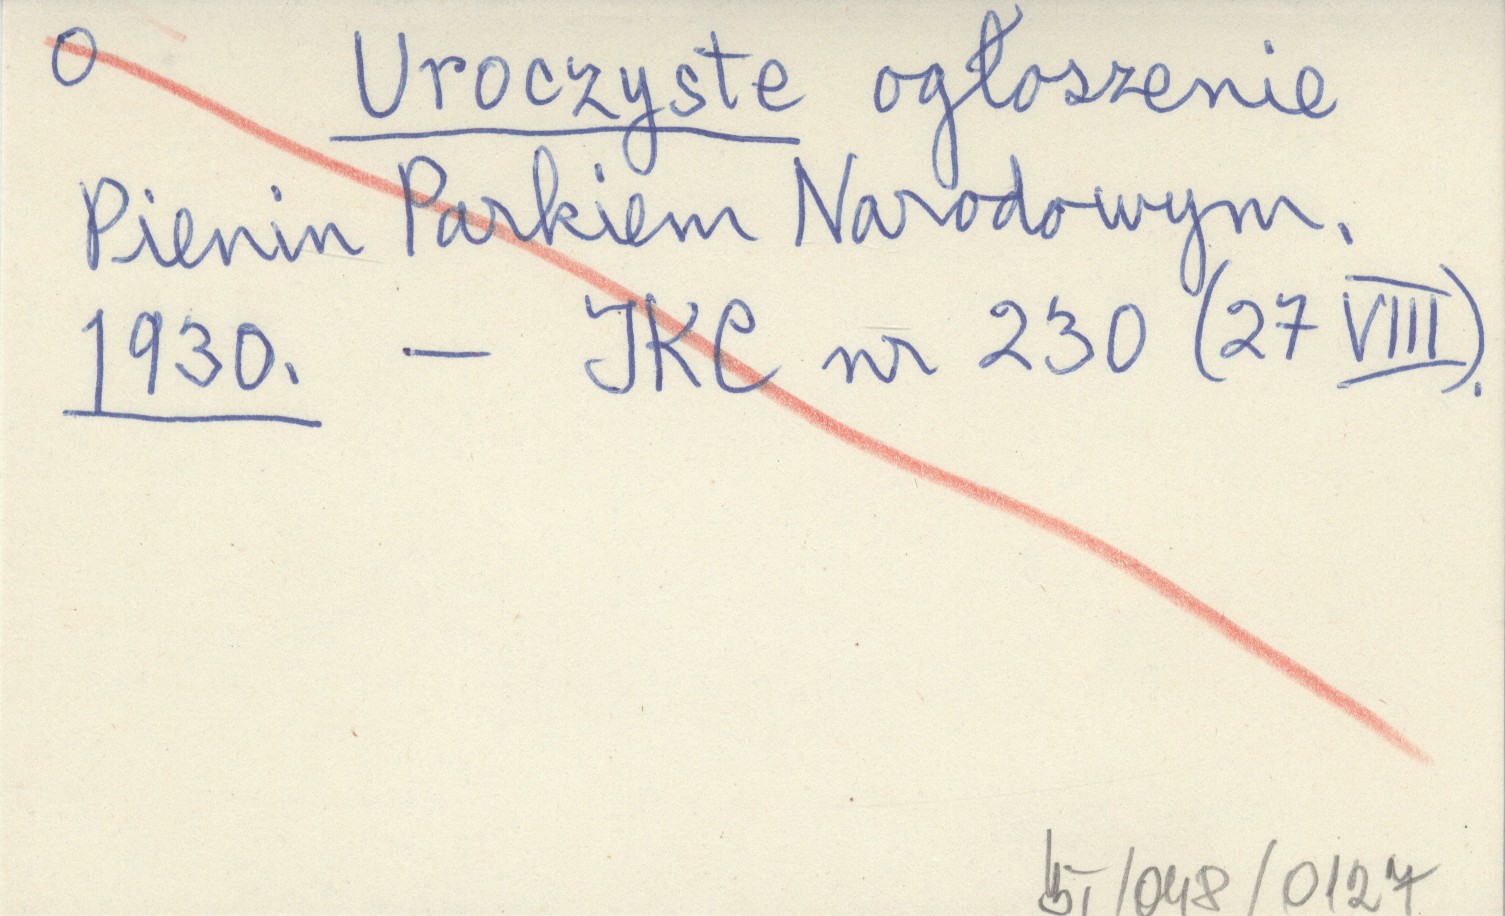 O Uroczyste ogłoszenie
Pienin Parkiem Narodowym.
1930. — JKC nr 230 (27 VIII).
/048/0127